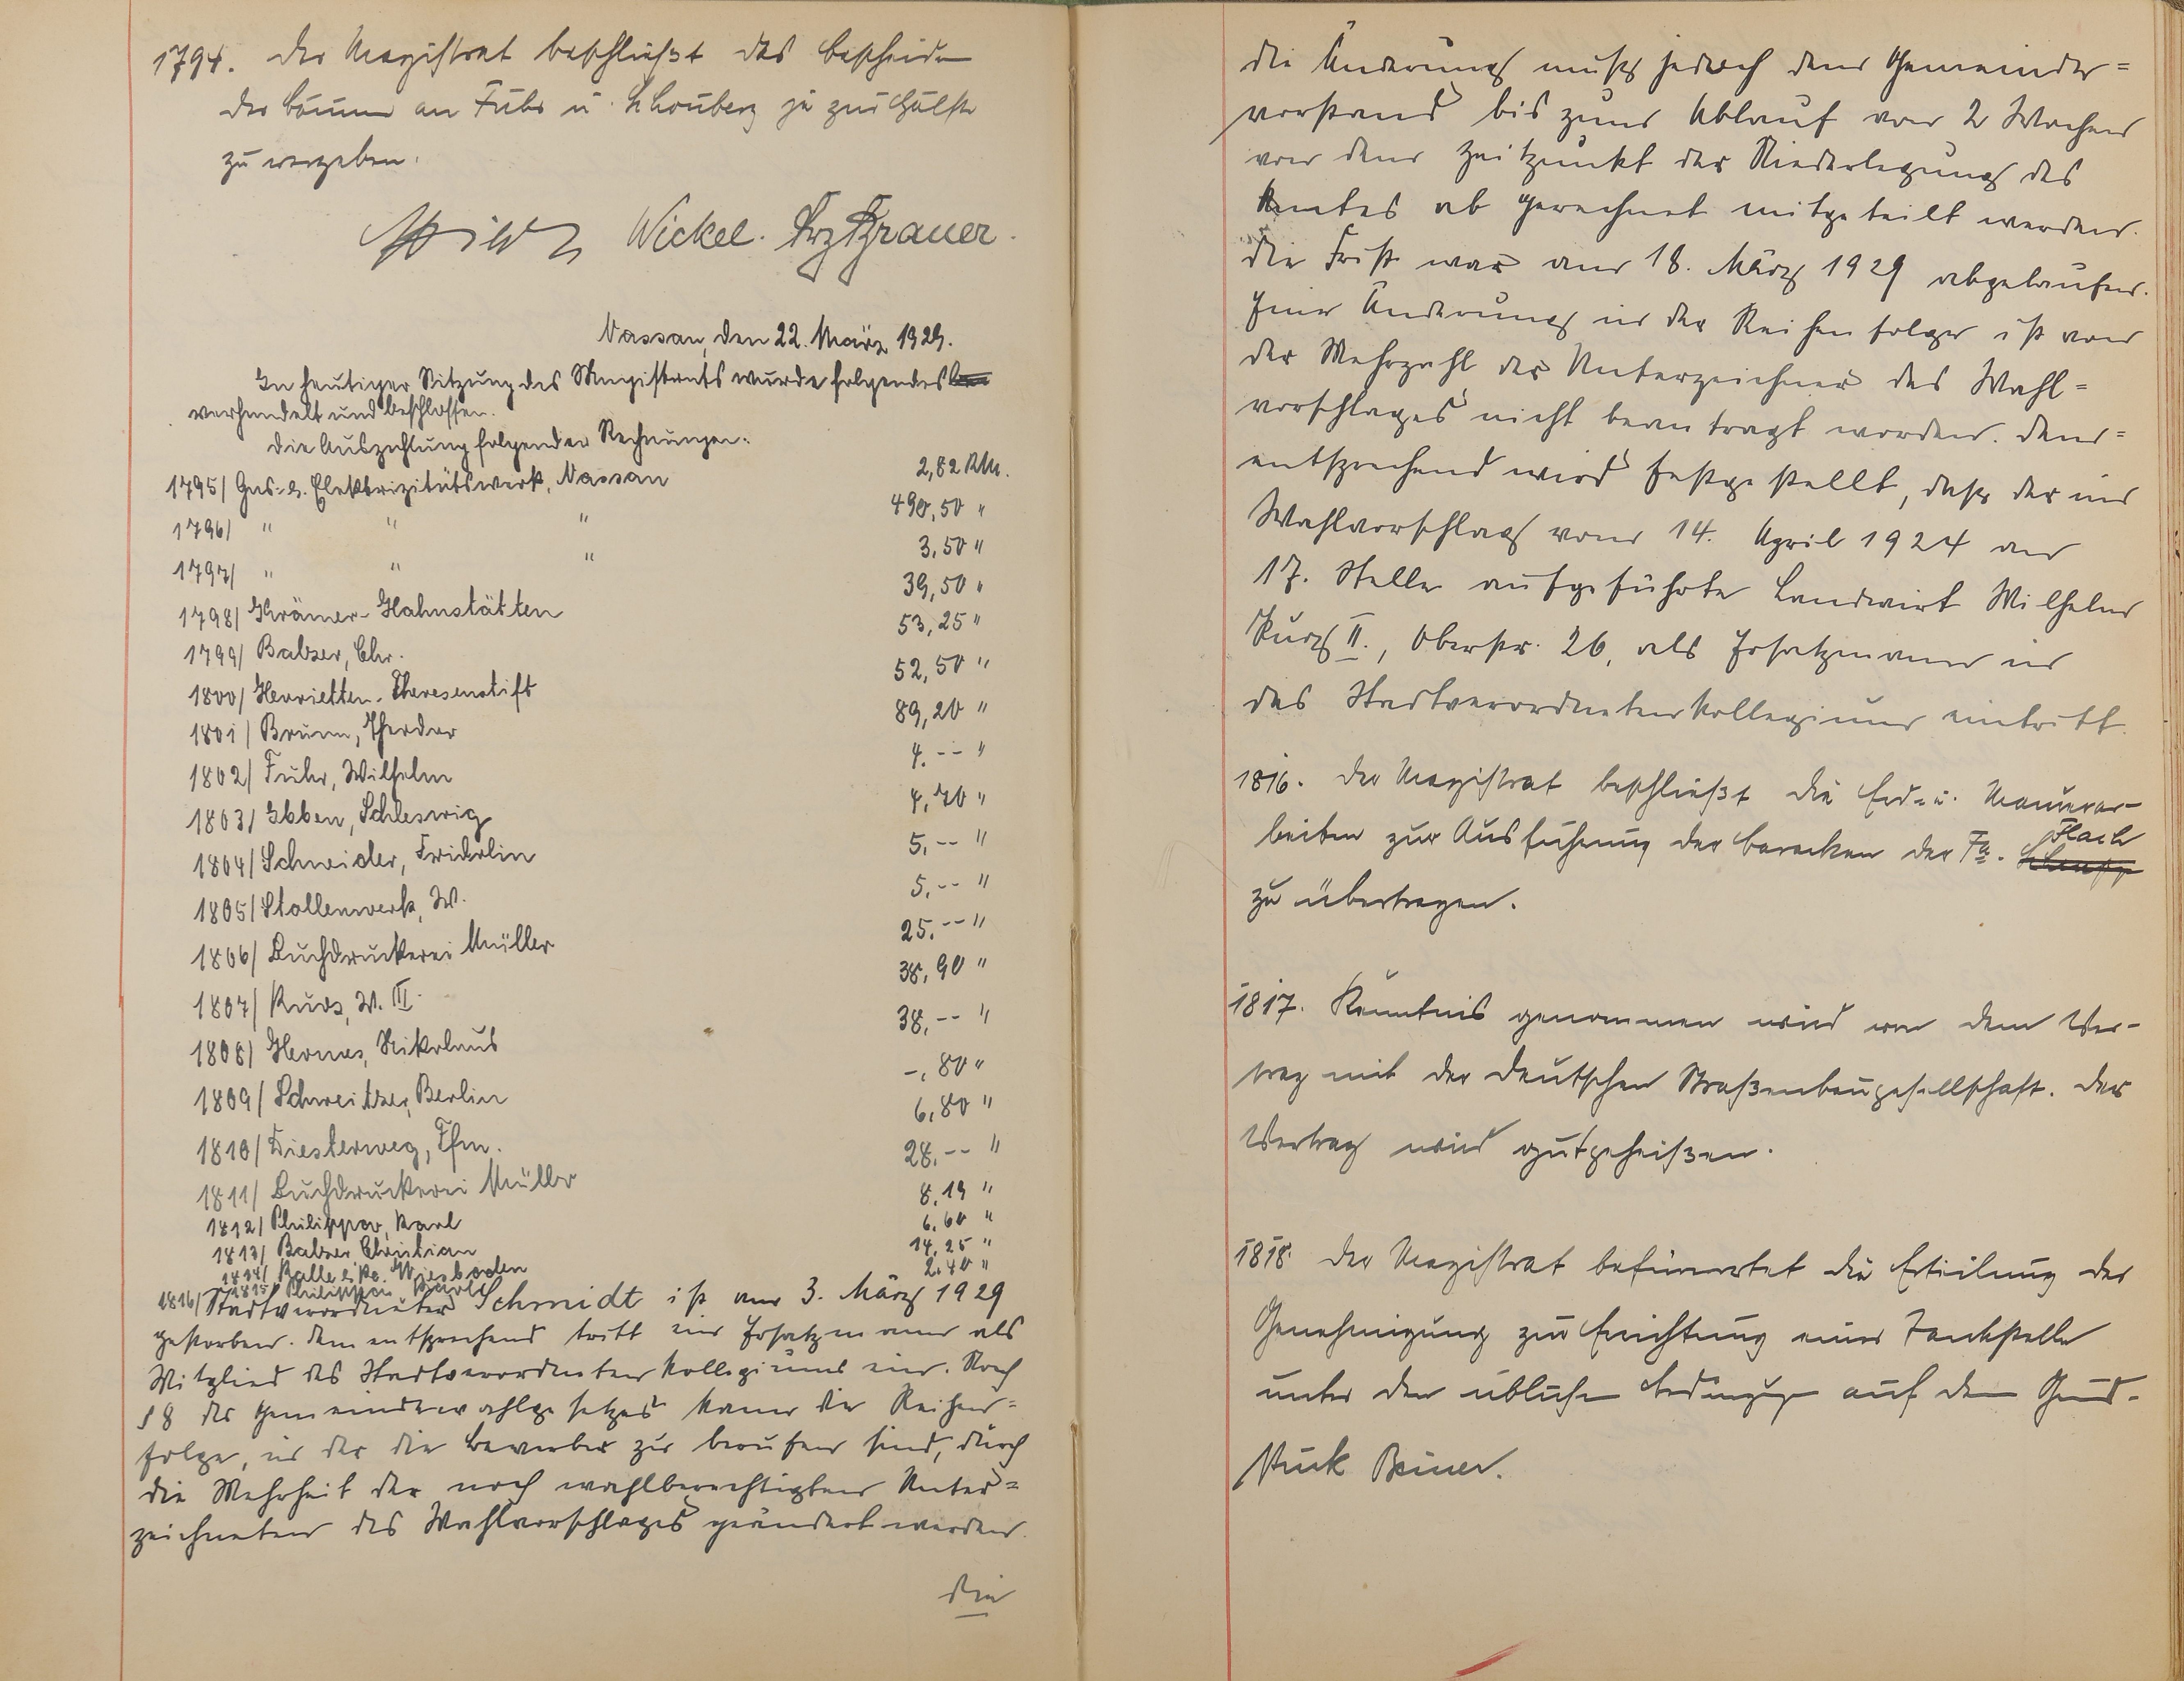 1794. Der Magistrat beschließt das Beschneiden
der Bäume an Fuhr u. Schonberg je zur Hälfte
zu vergeben.
Wickel. Brauer.
Nassau, den 22. März 1929.
In heutiger Sitzung des Magistrats wurde folgendes
verhandelt und beschlossen.
Die Auszahlung folgender Rechnungen:
1795/ Gas- u. Elektrizitätswerk, Nassau 2,82 RM.
1796/ " " " 490,50 "
1797/ " " " 3,50 "
1798/ Krämer-Hahnstätten 39,50 "
1799/ Balzer, Chr. 53,25 "
1800/ Henrietten-Theresenstift 52,50 "
1801/ Brunn, Theodor 89,20 "
1802/ Fuhr, Wilhelm 4.-- "
1803/ Ibben, Schleswig 4,70 "
1804/ Schneider, Fridolin 5,-- "
1805/ Stollenwerk, W. 5,-- "
1806/ Buchdruckerei Müller 25,-- "
1807/ Kurs, W. III. 38,90 "
1808/ Hermes, Nikolaus 38,-- "
1809/ Schweitzer, Berlin -,80 "
1810/ Diesterweg, Ffm. 6,80 "
1811/ Buchdruckerei Müller 28,-- "
1812/ Philippar, Karl 8,19 "
1813/ Balzer Christian 6,60 "
1814/ Balle & Ko. Wiesbaden 14,25 "
1815/ Philippar Karl 2,40 "
1816/ Stadtverordneter Schmidt ist am 3. März 1929
gestorben. Dementsprechend tritt ein Ersatzmann als
Mitglied des Stadtverordnetenkollegiums ein. Nach
§ 8 des Gemeindewahlgesetzes kann die Reihen=
folge, in der die Bewerber zu berufen sind, durch
die Mehrheit der noch wahlberechtigten Unter=
zeichneten des Wahlvorschlages geändert werden.
Die
die Änderung muß jedoch dem Gemeinde=
vorstand bis zum Ablauf von 2 Wochen
von dem Zeitpunkt der Niederlegung des
Amtes ab gerechnet mitgeteilt werden.
Die Frist war am 18. März 1929 abgelaufen.
Eine Änderung in der Reihenfolge ist von
der Mehrzahl der Unterzeichner des Wahl=
vorschlages nicht beantragt worden. Dem=
entsprechend wird festgestellt, daß der im
Wahlvorschlag vom 14. April 1924 an
17. Stelle aufgeführte Landwirt Wilhelm
Kurz II., Oberstr. 26, als Ersatzmann in
das Stadtverordnetenkollegium eintritt.
1816. Der Magistrat beschließt die Erd- u. Maurerar-
beiten zur Ausführung der Baracken der Fa. Flach
zu übertragen.
1817. Kenntnis genommen wird von dem Ver-
trag mit der Deutschen Straßenbaugesellschaft. Der
Vertrag wird gutgeheißen.
1818. Der Magistrat befürwortet die Erteilung der
Genehmigung zur Errichtung einer Tankstelle
unter den üblichen Bedingungen auf dem Grund-
stück Beiner.